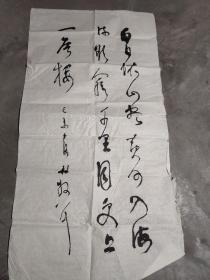 白日依山尽黄河入海
流欲穷千里目更上
一层楼